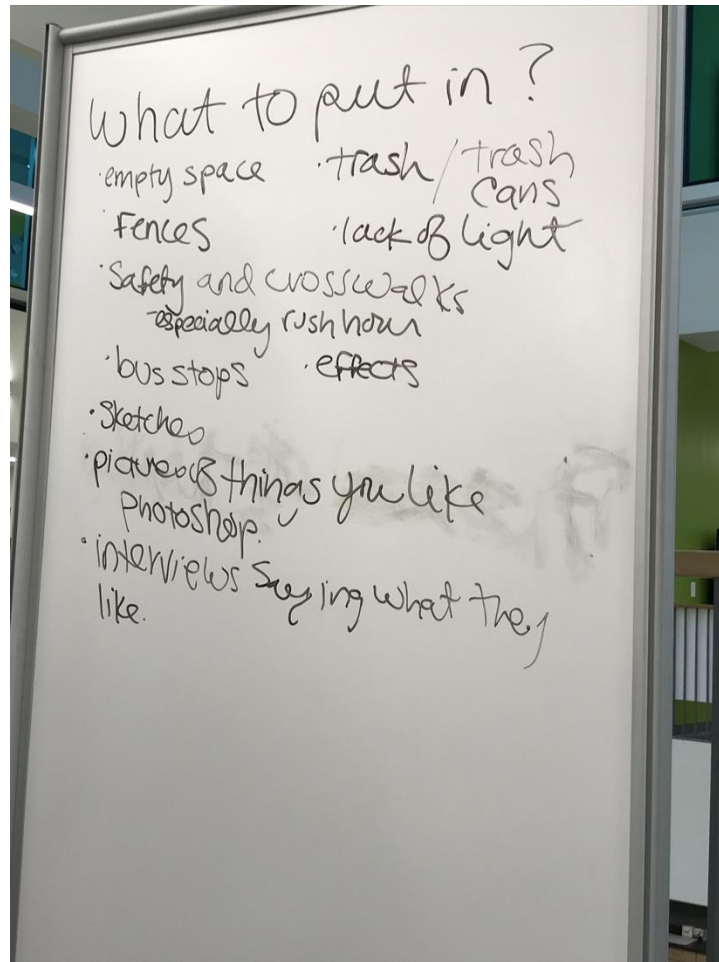 What to put in?
·empty space ·trash / trash cans
·Fences ·lack of light
·Safety and crosswalks
-especially rush hour
·bus stops ·effects
·Sketches
·pictures of things you like
Photoshop.
·interviews Saying what they
like.